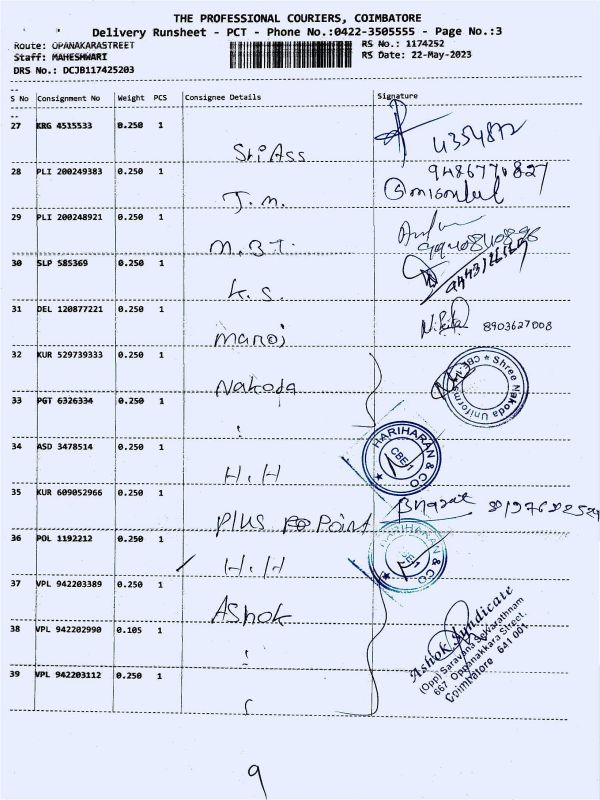 THE PROFESSIONAL COURIERS, COIMBATORE
Delivery Runsheet - PCT - Phone No.:0422-3505555 - Page No.:3
Route: OPANAKARASTREET RS No.: 1174252
Staff: MAHESHWARI RS Date: 22-May-2023
DRS No.: DCJB117425203
S No Consignment No Weight PCS Consignee Details Signature
27 KRG 4535533 0.250 1
Sri Ass
28 PLI 200249383 0.250 1 9486770827
J.M.
29 PLI 200248921 0.250 1
M.B.T.
30 SLP 585369 0.250 1
K.S.
31 DEL 120877221 0.250 1 8903627008
Manoj
32 KUR 529739333 0.250 1
Nakoda Shree Nakoda Uniforms CBE-1
33 PGT 6326334 0.250 1
34 ASD 3478514 0.250 1 HARIHARAN & CO CBE 1
H.H
35 KUR 609052966 0.250 1 Bharat
Plus Point
36 POL 1192212 0.250 1 HARIHARAN & CO CBE 1
H.H
37 VPL 942203389 0.250 1
Ashok
38 VPL 942202990 0.105 1 Ashok Syndicate
(Opp) Saravana Selvarathnam
39 VPL 942203112 0.250 1 667, Oppanakkara Street,
Coimbatore 641 001
9